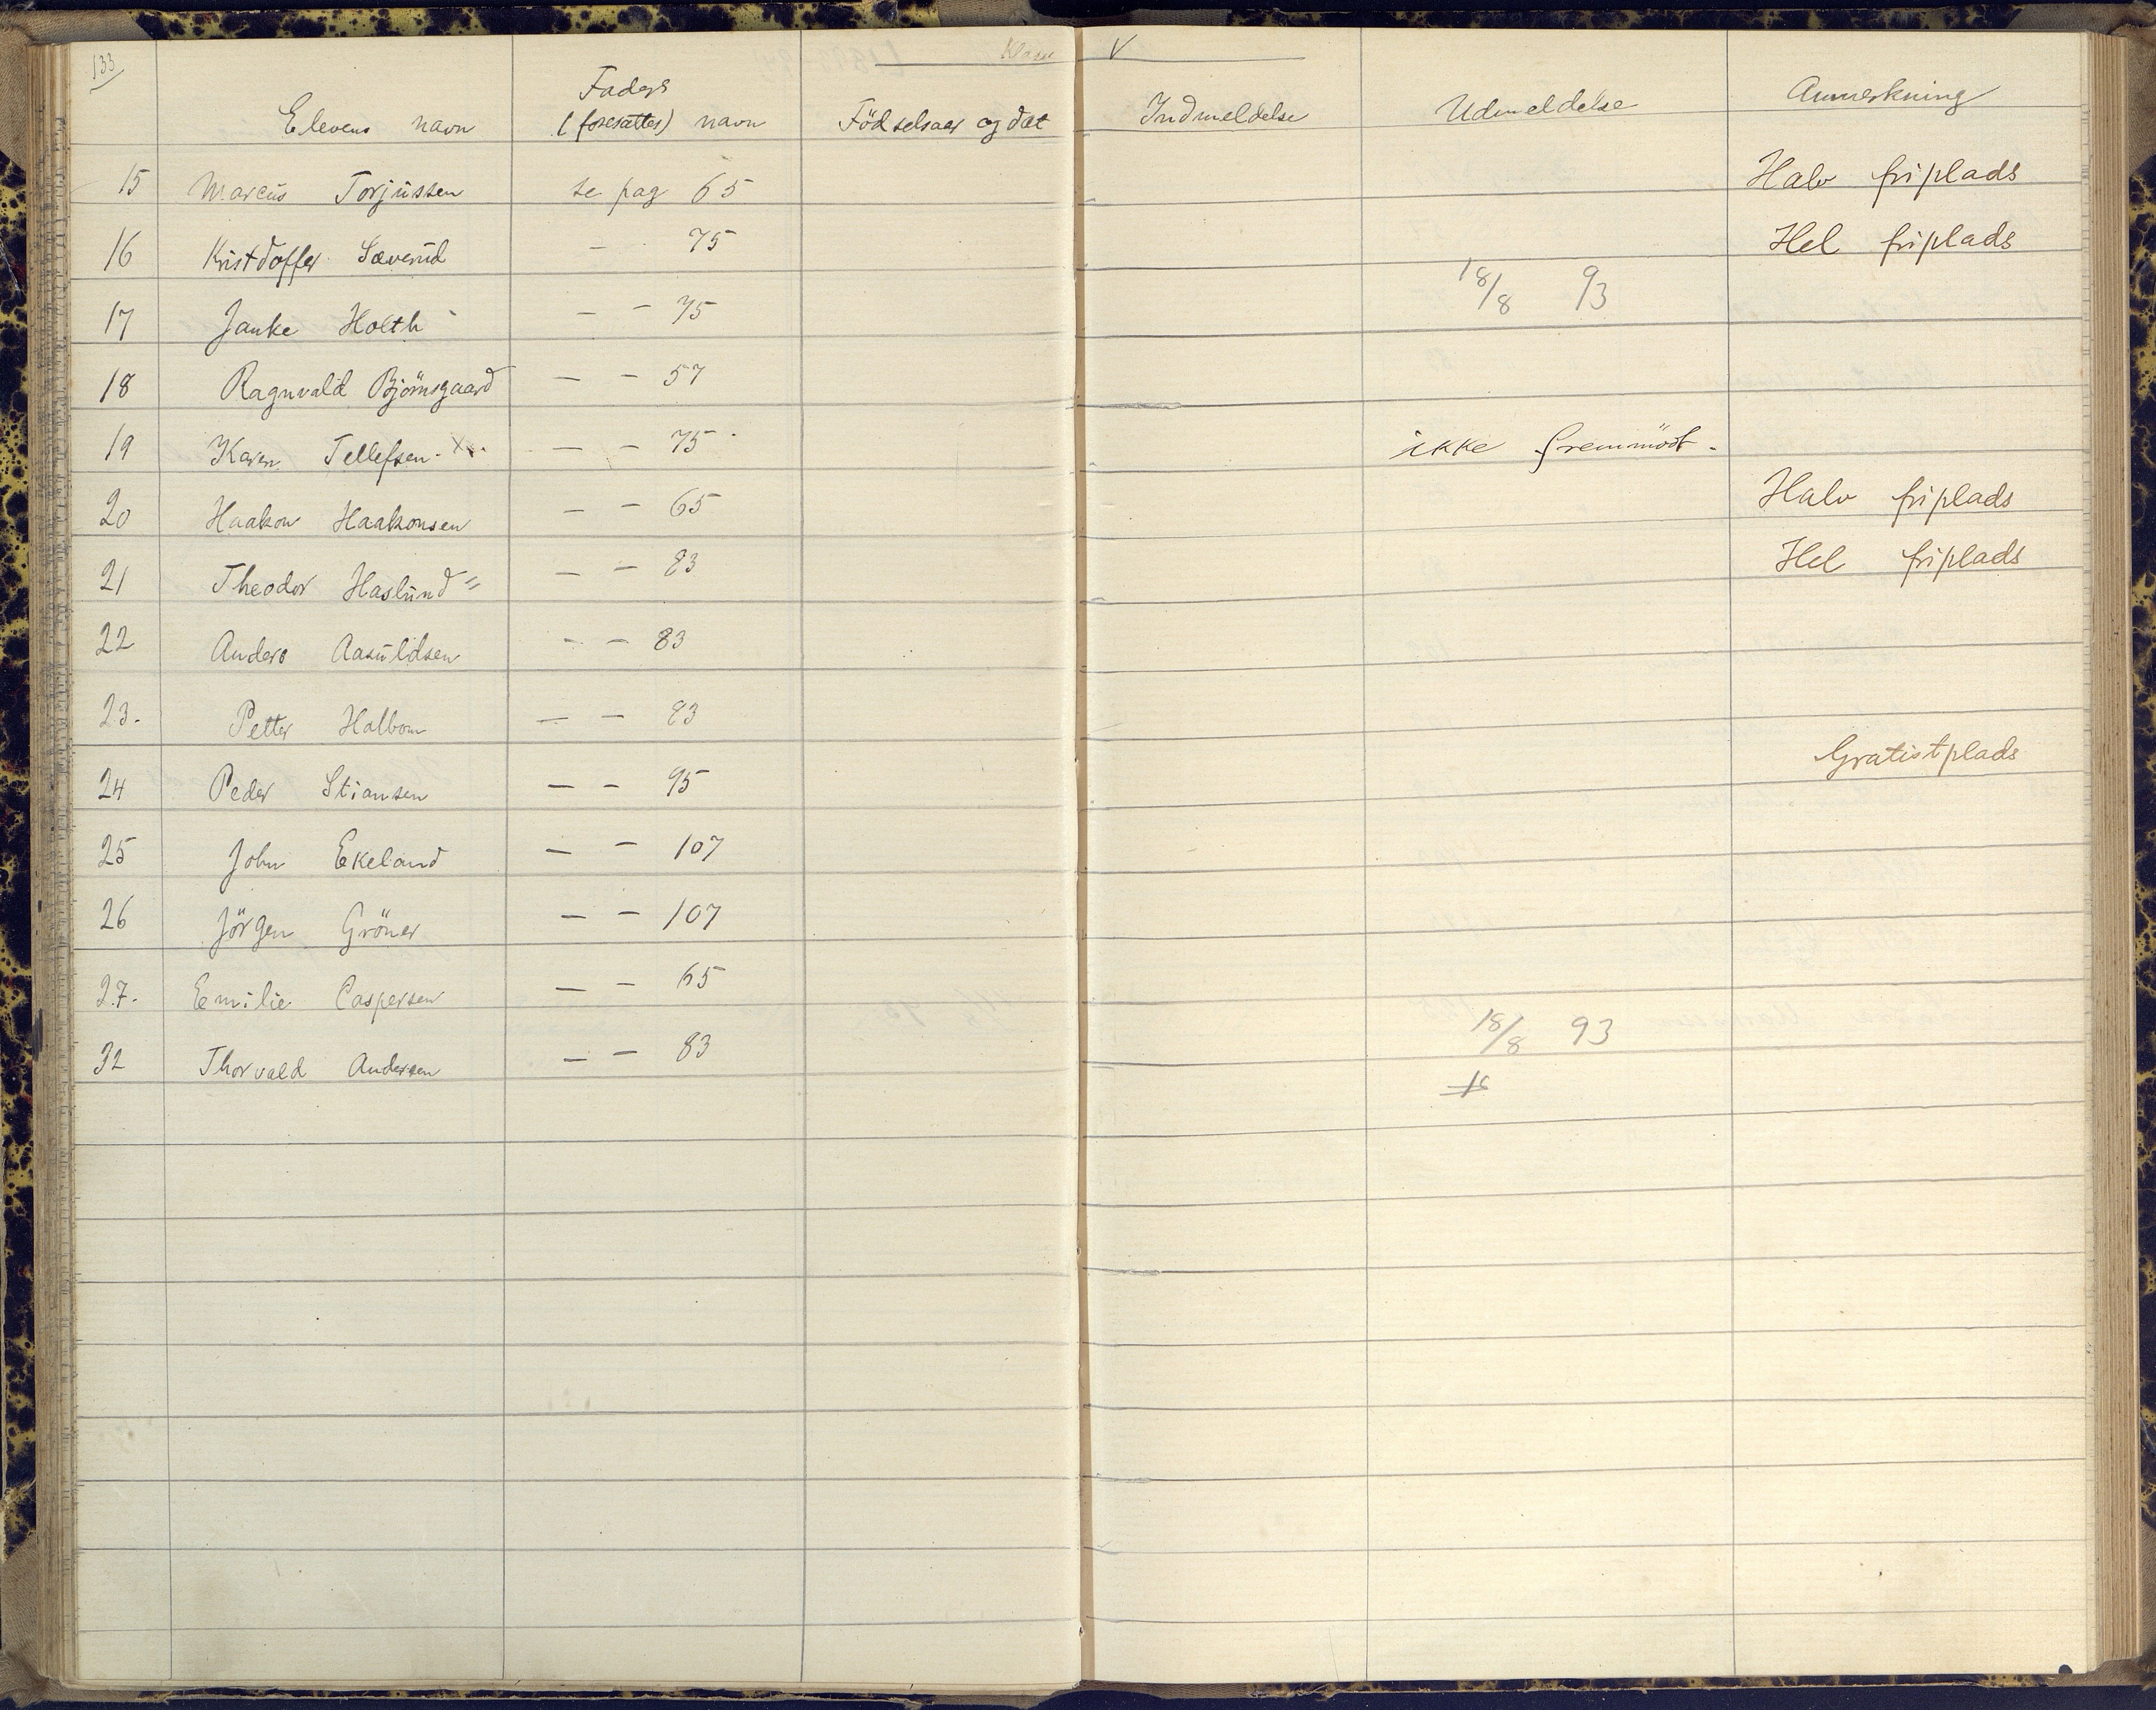 133 Klasse V
Elevens navn Faders (foresattes) navn Födselsaar og dat Indmeldelse Udmeldelse Anmerkning
15 Marcus Torjussen se pag 65 Halv friplads
16 Kristdoffer Sæverud - - 75 Hel friplads
17 Janke Holth - - 75 18/8 93
18 Ragnvald Björnsgaard - - 57
19 Karen Tellefsen. x. - - 75 ikke fremmödt.
20 Haakon Haakonsen - - 65 Halv friplads
21 Theodor Haslund = - - 83 Hel friplads
22 Anders Aasuldsen - - 83
23. Petter Halbom - - 83
24 Peder Stiansen - - 95 Gratistplads
25 John Ekeland - - 107
26 Jörgen Gröner - - 107
27. Emilie Caspersen - - 65
32 Thorvald Andersen - - 83 18/8 93